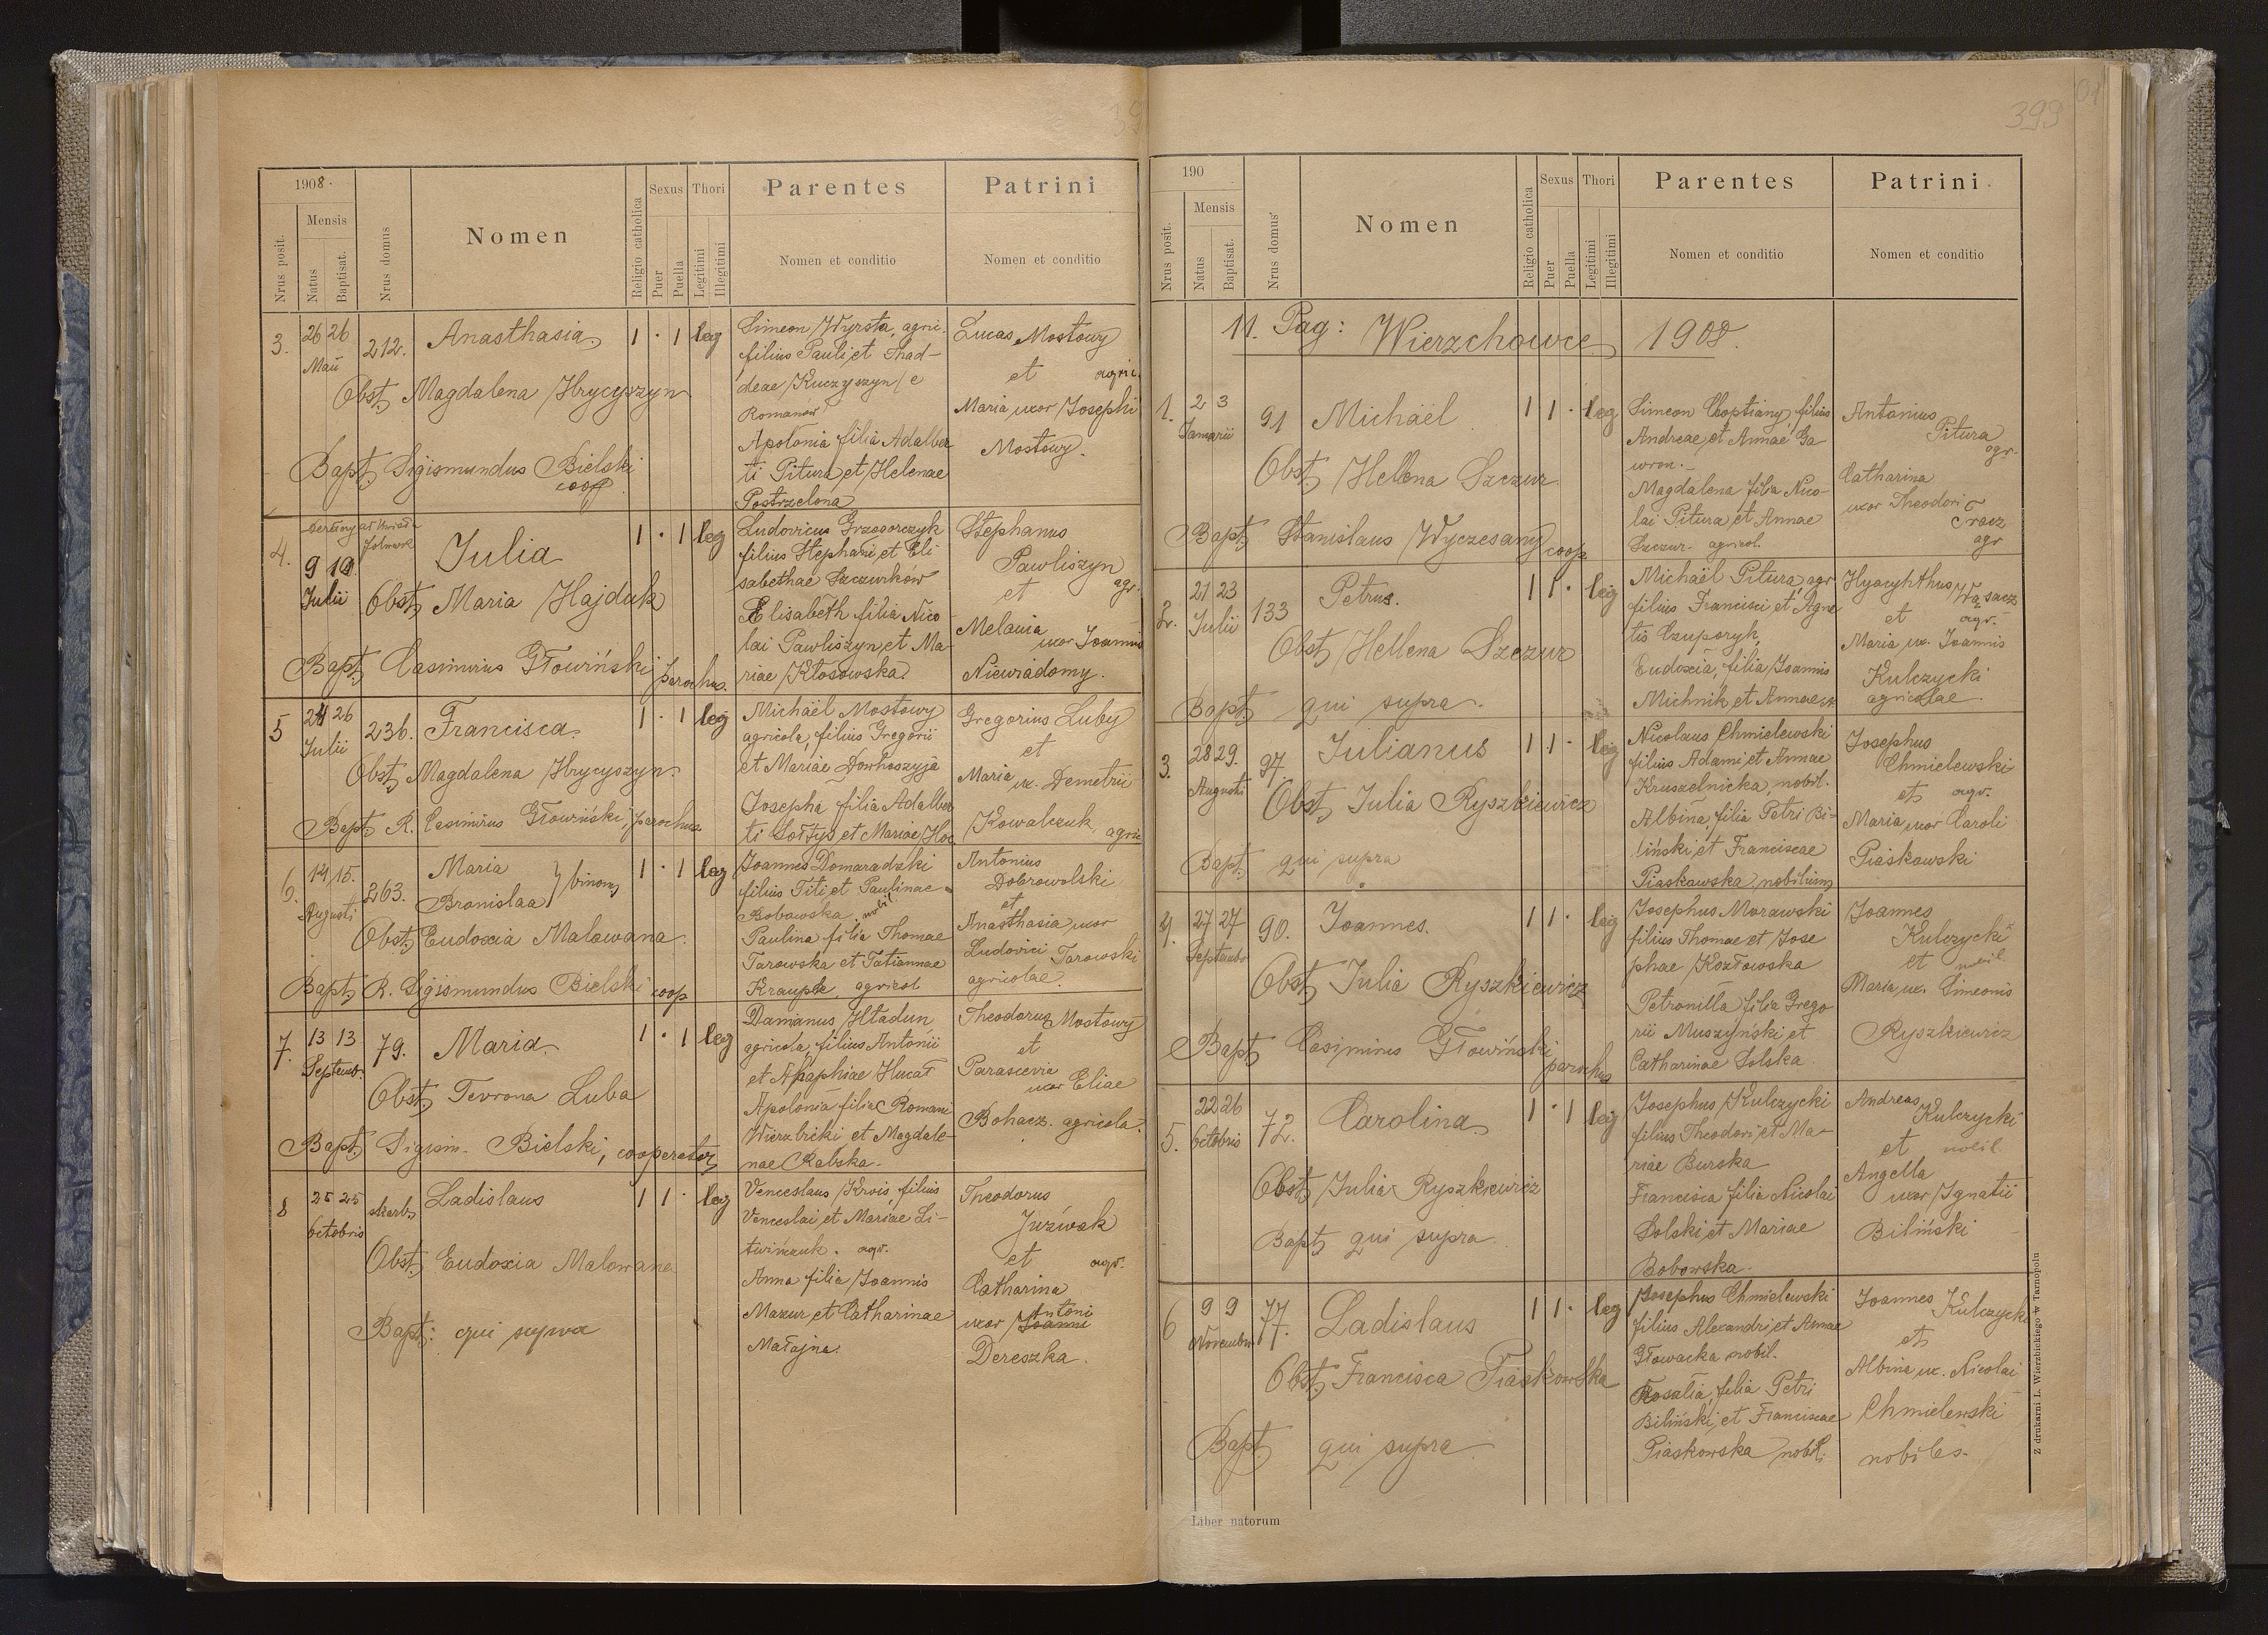 1908.
Nrus posit.
Mensis
Natus
Baptisat.
Nrus domus
Nomen
Religio catholica
Sexus
Puer
Puella
Thori
Legitimi
Illegitimi
Parentes
Nomen et conditio
Patrini
Nomen et conditio
3.
26 26
Maii
212.
Anasthasia
1 · 1 leg
Obst. Magdalena Hrycyszyn
Bapt. Sigismundus Bielski
coop
Simeon Wyrsta, agric.
filius Pauli et Thad-
deae Kuczyszyn / e
Romanów
Apolonia filia Adalber
ti Pitura et Helenae
Postrzelona
Lucas Mostowy
et agric.
Maria uxor Josephi
Mostowy.
4.
9 10
Julii
Julia
1 · 1 leg
Obst. Maria Hajduk
Bapt. Casimirus Głowiński parochus.
Ludovicus Grzegorczyk
filius Stephani et Eli
sabethae Szczurków
Elisabeth filia Nico
lai Pawliszyn et Ma-
riae Kłosowska.
Stephanus
Pawliszyn
et agr.
Melania
uxor Joannis
Niewiadomy.
5
24 26
Julii
236.
Francisca
1 · 1 leg
Obst. Magdalena Hrycyszyn.
Bapt. R. Casimirus Głowiński, parochus
Michaël Mostowy
agricola, filius Gregorii
et Mariae Dowhoszyja
Josepha filia Adalber
ti Sołtys et Mariae Hoc
Gregorius Luby
et
Maria
ux. Demetrii
Kowalczuk, agric
6.
14 15.
Augusti
263.
Maria
Bronislaa } binom
1 · 1 leg
Obst. Eudoxia Malowana.
Bapt. R. Sigismundus Bielski coop
Joannes Domaradzki
filius Titi et Paulinae
Bobowska, nobil
Paulina filia Thomae
Tarowska et Tatiannae
Kraupk, agricol
Antonius
Dobrowolski
et
Anasthasia uxor
Ludovici Tarowski
agricolae.
7.
13 13
Septemb.
79.
Maria
1 · 1 leg
Obst. Tevrona Luba
Bapt. Sigism. Bielski, cooperator
Damanus Hładun
agricola, filius Antonii
et Ahaphiae Hucał
Apolonia filia Romani
Wierzbicki et Magdale-
nae Rebska.
Theodorus Mostowy
et
Parascevia
uxor Eliae
Bohacz. agricola.
8
25 25
Octobris
Ladislaus
1 1 · leg
Obst. Eudoxia Malowana
Bapt: qui supra
Venceslaus Krois, filius
Venceslai et Mariae Li-
twińczuk. agr.
Anna filia Joannis
Mazur et Catharinae
Matajna.
Theodorus
Juźwak
et agr.
Catharina
Antoni
uxor Joanni
Dereszka.
399
190
Nrus posit.
Mensis
Natus
Baptisat.
Nrus domus
Nomen
Religio catholica
Sexus
Puer
Puella
Thori
Legitimi
Illegitimi
Parentes
Nomen et conditio
Patrini
Nomen et conditio
11. Pag: Wierzchowce 1908.
1.
2 3
Januarii
91
Michaël
1 1 · leg
Obst. Hellena Szczur
Bapt. Stanislaus Wyczesany coop
Simeon Choptiany, filius
Andreae et Annae Ga
wron.
Magdalena filia Nico-
lai Pitura et Annae
Szczur. agricol.
Antonius
Pitura
agr.
Catharina
uxor Theodori
Tracz
agr
2.
21 23
Julii
133
Petrus.
1 1 · leg
Obst. Hellena Szczur
Bapt. qui supra.
Michaël Pitura, agr
filius Francisci et Agne
tis Czuporyk,
Eudoxia, filia Joannis
Michnik et Annae
Hyacyhthus Wąsacz
et agr.
Maria ux. Joannis
Kulczycki
agricolae.
3.
28 29.
Augusti
97.
Julianus
1 1 · leg
Obst. Julia Ryszkiewicz
Bapt. qui supra
Nicolaus Chmielewski
filius Adami et Annae
Kruszelnicka, nobil.
Albina, filia Petri Bi-
liński et Franciscae
Piaskawska nobilium
Josephus
Chmielewski
et agr.
Maria uxor Caroli
Piaskawski
4.
27 27
Septembr
90.
Joannes.
1 1 · leg
Obst. Julia Ryszkiewicz
Bapt. Casimirus Głowiński
parochus
Josephus Morawski
filius Thomae et Jose
phae Kozłowska
Petronilla filia Grego
rii Muszyński et
Catharinae Solska
Joannes
Kulczycki
et nobil.
Maria, ux. Simeonis
Ryszkiewicz
5.
22 26
Octobris
72.
Carolina
1 · 1 leg
Obst. Julia Ryszkiewicz
Bapt. qui supra.
Josephus Kulczycki
filius Theodori et Ma-
riae Burska
Francisca filia Nicolai
Solski et Mariae
Bobowska.
Andreas
Kulczycki
et nobil.
Angella
uxor Ignatii
Biliński
6
9 9
Novembr
77.
Ladislaus
1 1 · leg
Obst. Francisca Piaskowska
Bapt qui supra
Josephus Chmielewski
filius Alexandri et Annae
Głowacka nobil.
Rosalia, filia Petri
Biliński et Franciscae
Piaskowska nobil.
Joannes Kulczycki
et
Albina ux. Nicolai
Chmielewski
nobiles.
Liber natorum
Z drukarni L. Wierzbickiego w Tarnopolu